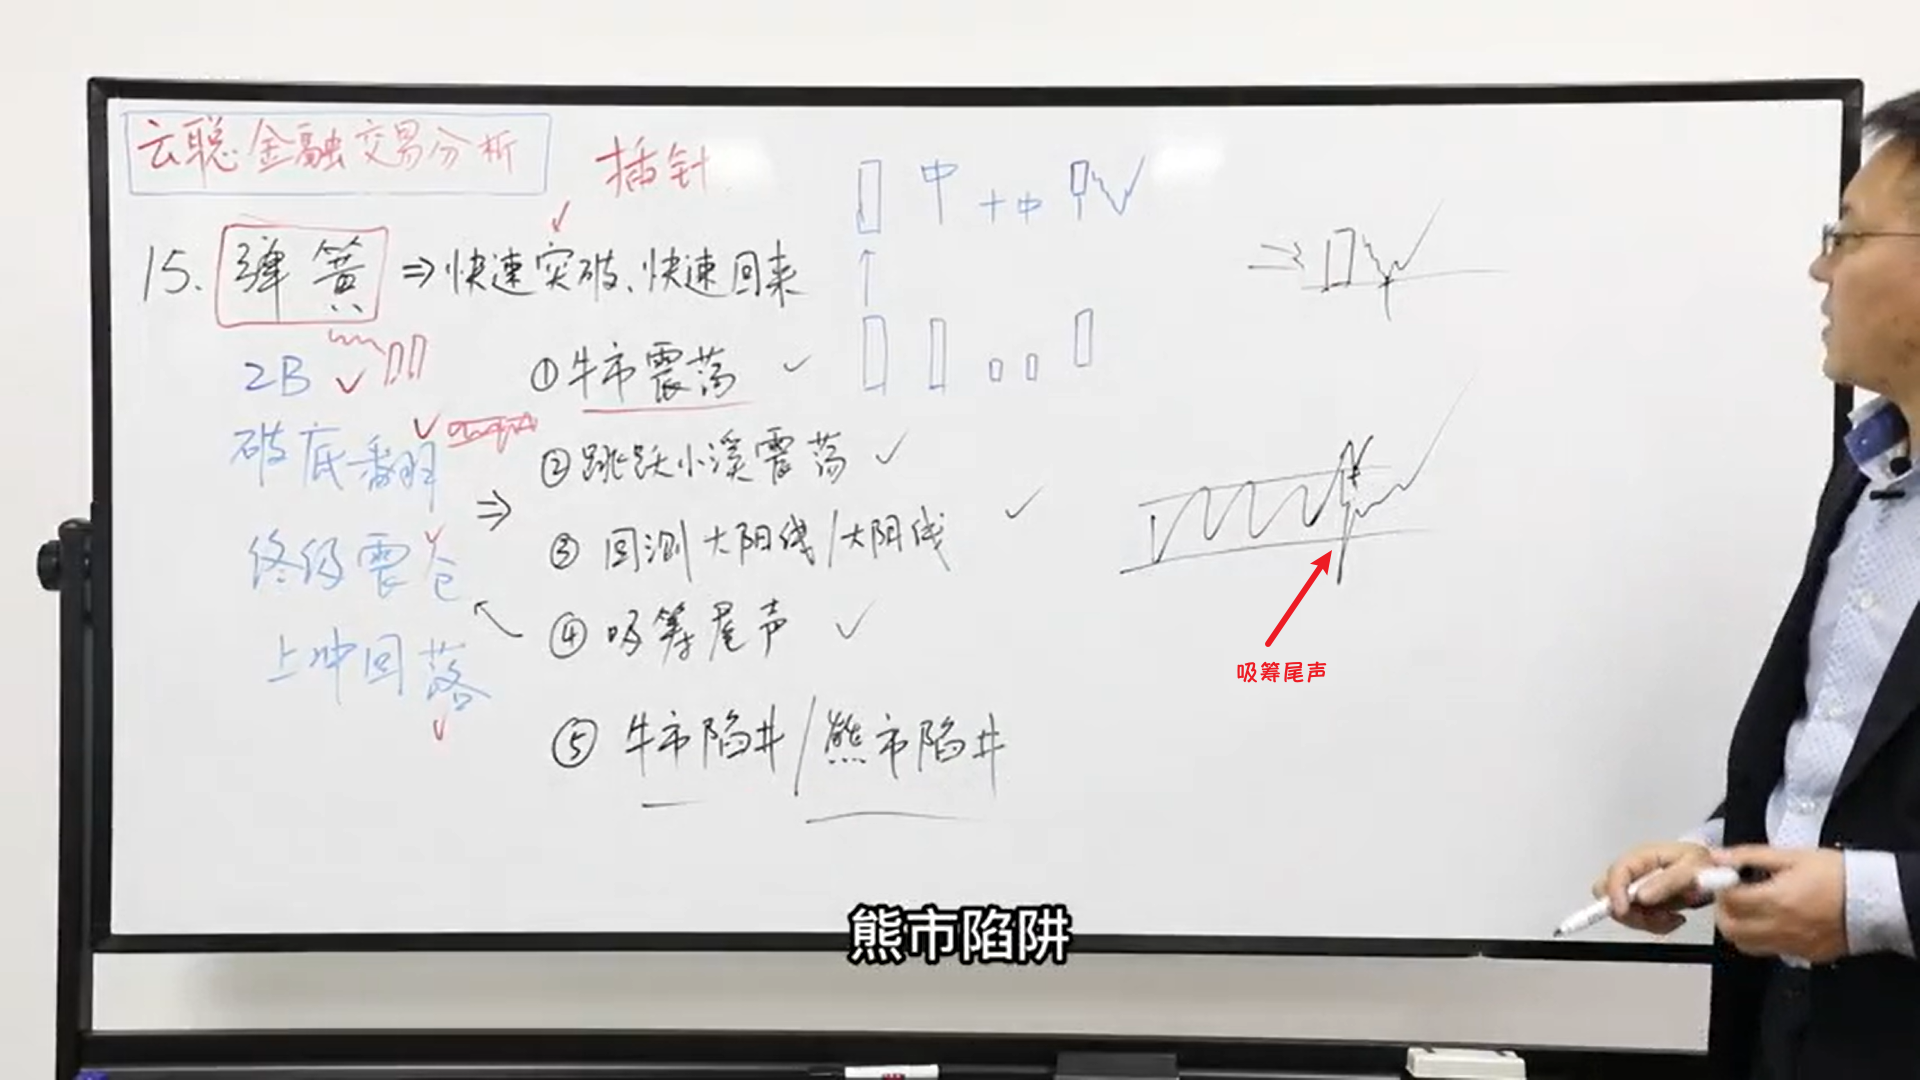 云聪金融交易分析
插针
15. 弹簧 ⇒ 快速突破、快速回来
2B
破底翻
终级震仓
上冲回落
⇒
①牛市震荡
②跳跃小溪震荡
③回测大阳线/大阴线
④吸筹尾声
⑤牛市陷井/熊市陷井
吸筹尾声
熊市陷阱